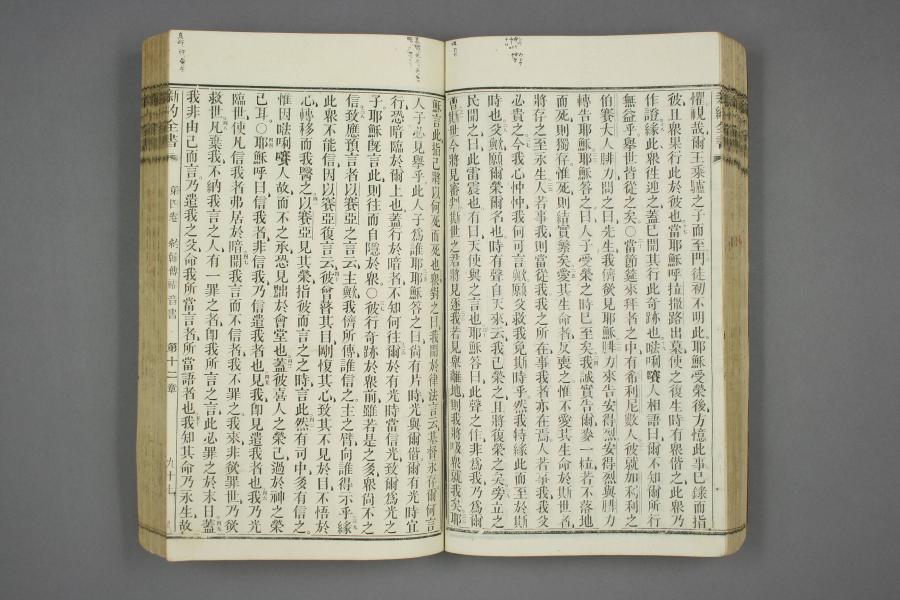 懼視哉爾王乘驢之子而至門徒初不明此耶穌受榮後方憶此事已錄而指
彼且眾果行此於彼也當耶穌呼拉撒路出墓使之復生時有眾偕之此眾乃
作證緣此眾往迎之蓋已聞其行此奇跡也唎賽人相語曰爾不知爾所行
無益乎舉世皆從之矣○當節筵來拜者之中有希利尼數人彼就加利利之
伯賽大人腓力問之曰先生我儕欲見耶穌腓力來告安得烈安得烈與腓力
轉告耶穌耶穌答之曰人子受榮之時已至矣我誠實告爾麥一粒若不落地
而死則獨存惟死則結實繁矣愛其生命者反喪之惟不愛其生命於斯世者
將存之至永生人若事我則當從我我之所在事我者亦在焉人若事我我父
必貴之今我心忡忡我何可言歟願父救我免斯時乎然我特緣此而至於斯
時也父歟願爾榮爾名也時有聲自天來云我已榮之且將復榮之矣旁立之
民聞之曰此雷震也有曰天使與之言也耶穌答曰此聲之作非為我乃為爾
曹斯世今將見審判斯世之君將見逐我若見舉離地則我將吸眾就我矣耶
穌言此指己將以何死而死也眾對之曰我聞於律法言云基督永存爾何言
人子必見舉乎此人子為誰耶耶穌答之曰尚有片時光與爾偕爾有光時宜
行恐暗臨於爾上也蓋行於暗者不知何往爾於有光時當信光致爾為光之
子耶穌既言此則往而自隱於眾○彼行奇跡於眾前雖若是之多眾尚不之
信致應預言者以賽亞之言云主歟我儕所傳誰信之主之臂向誰得示乎緣
此眾不能信因以賽亞復言云彼曾瞽其目剛愎其心致其不見於目不悟於
心轉移而我醫之以賽亞見其榮指彼而言之之時言此然有司中多有信之
惟因唎賽人故而不之承恐見黜於會堂也蓋彼喜人之榮已過於神之榮
已耳○耶穌呼曰信我者非信我乃信遣我者也見我卽見遣我者也我乃光
臨世使凡信我者弗居於暗聞我言而不信者我不罪之我來非欲罪世乃欲
救世凡棄我不納我言之人有一罪之者卽我所言之言此必罪之於末日蓋
我非由己而言乃遣我之父命我所當言者所當語者也我知其命乃永生故
新約全書 第四卷 約翰傳福音書 第十二章 九十七